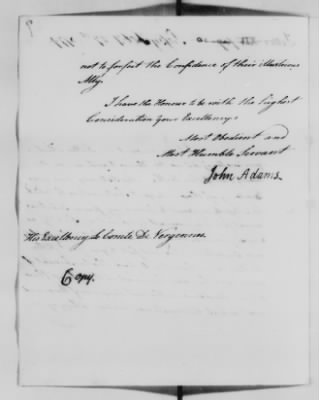 not to forfeit the Confidence of their illustrious
Ally.
I have the Honour to be with the highest
Consideration your Excellency's
Most Obedient and
Most Humble Servant
John Adams.
His Excellency le Comte De Vergennes.
Copy.